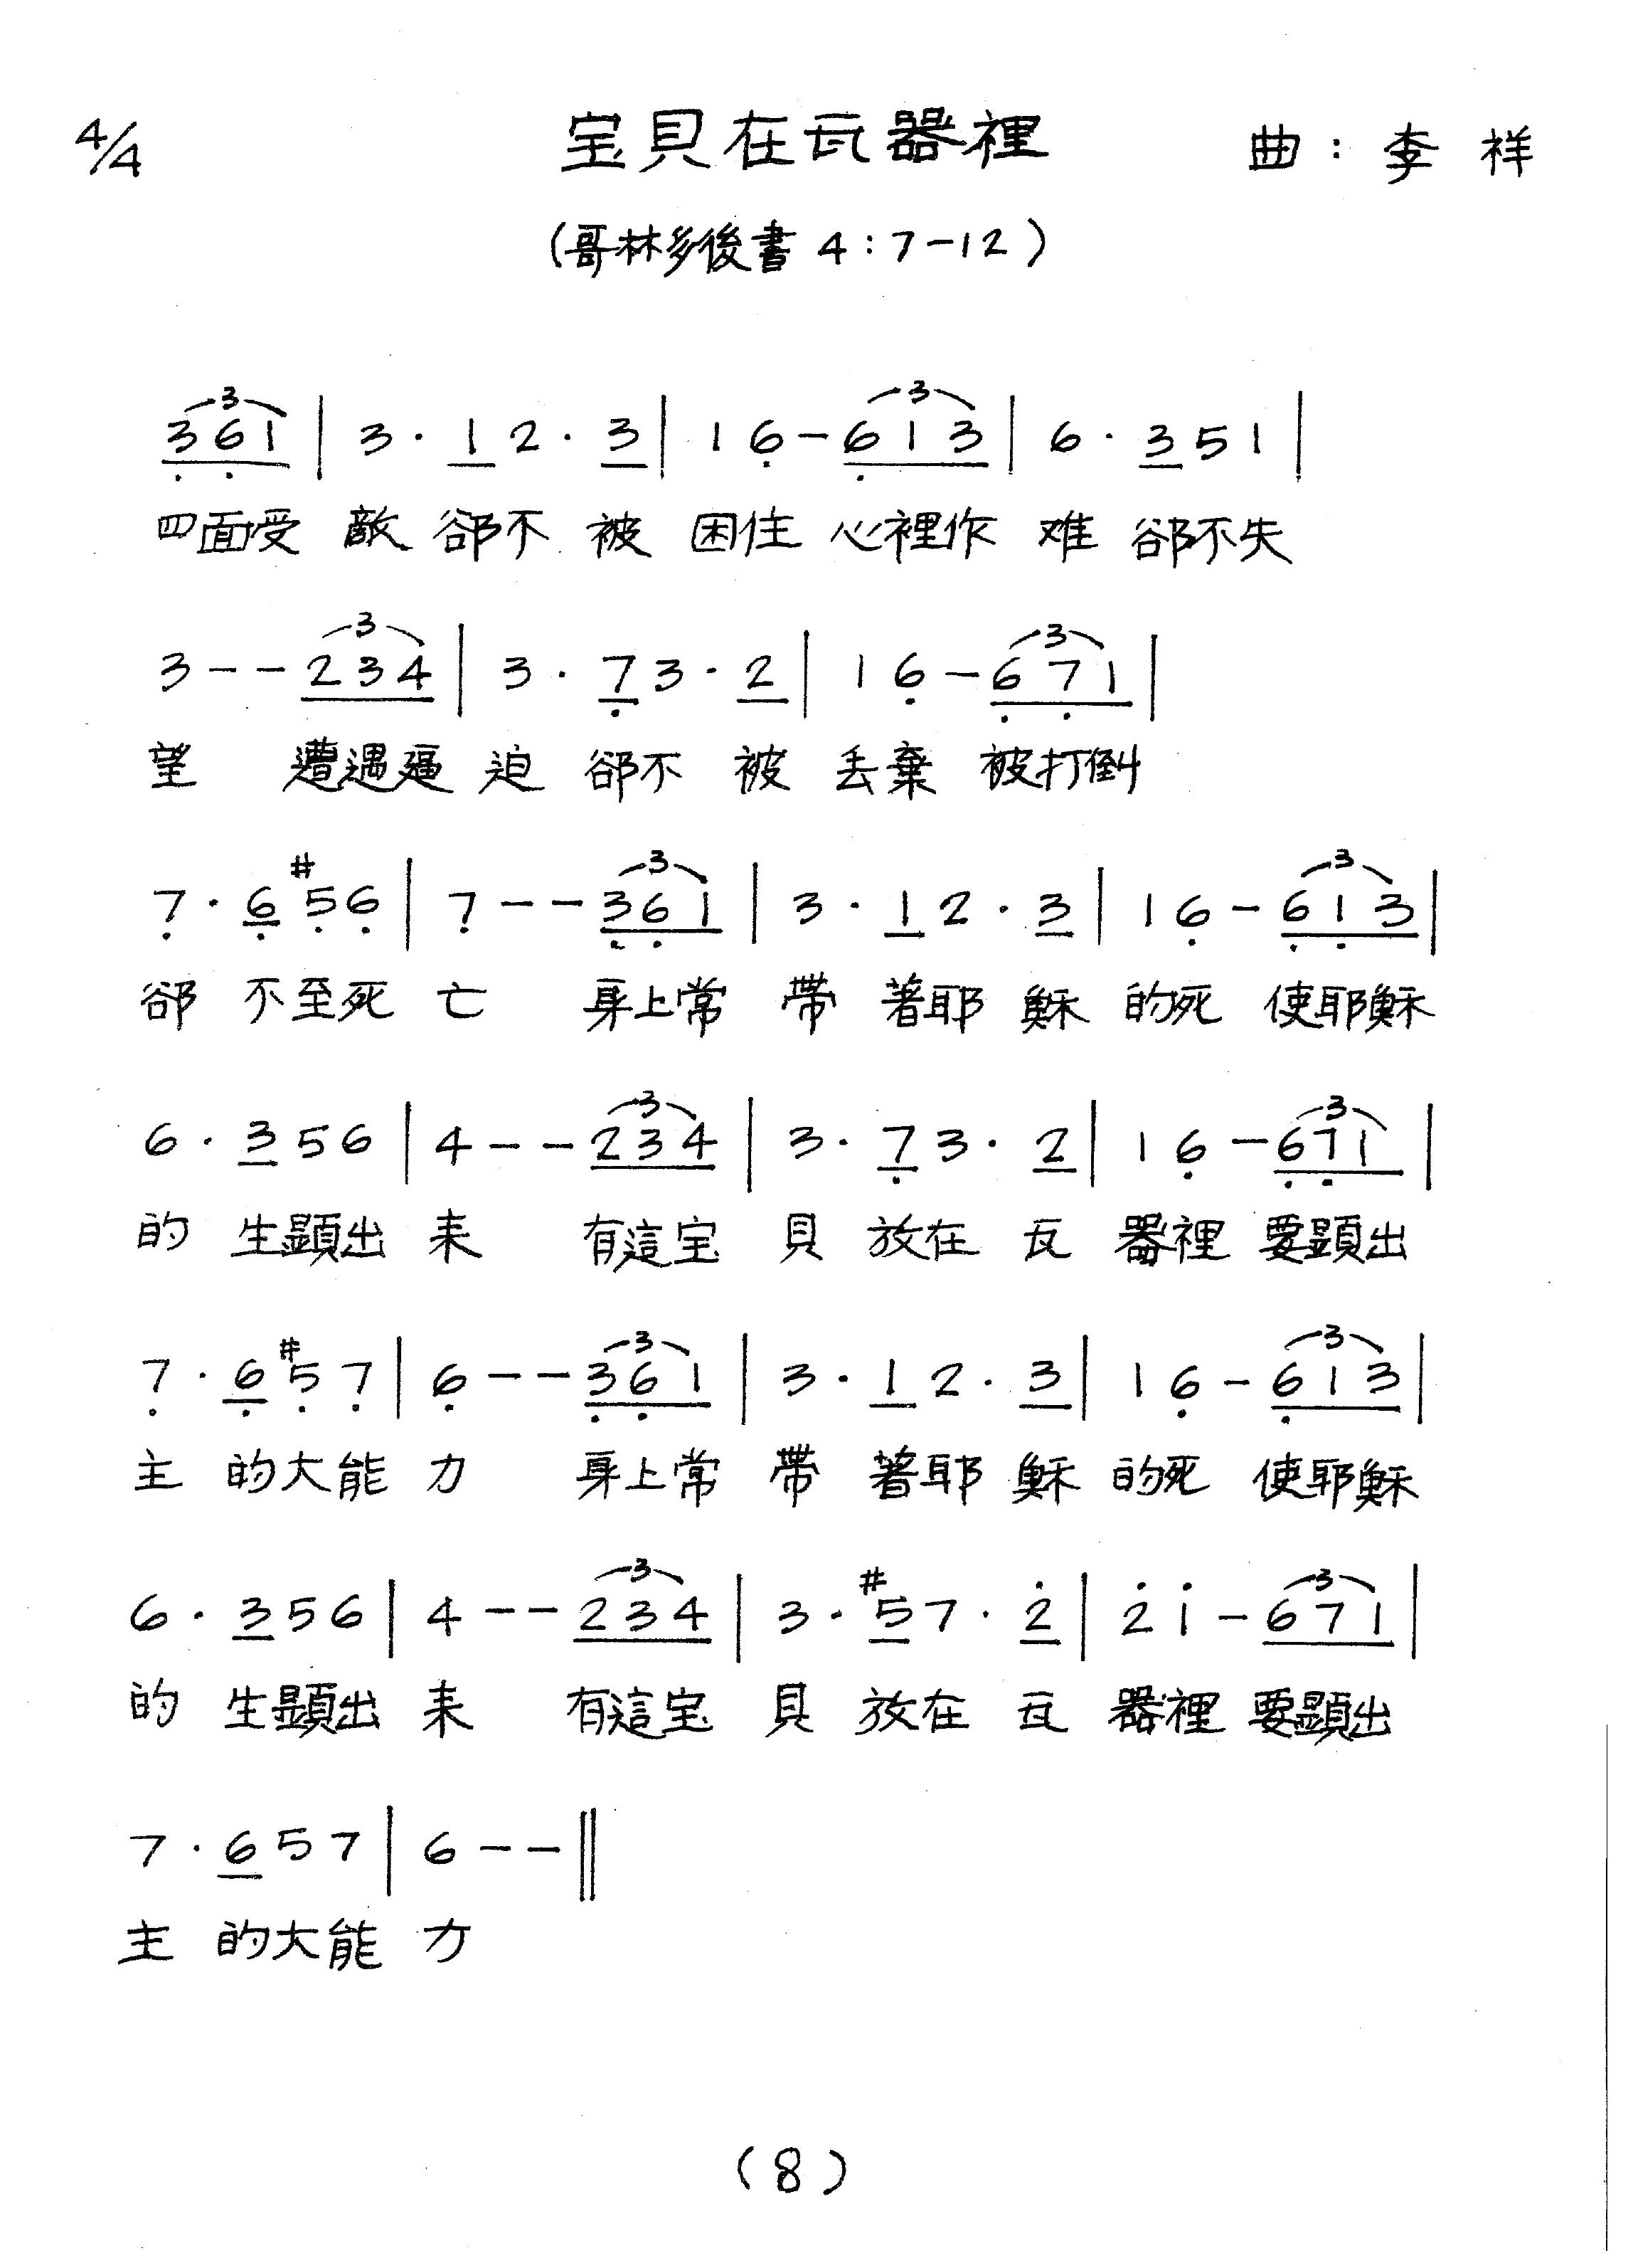 4/4 宝貝在瓦器裡 曲：李祥
(哥林多後書 4:7-12)
3 6 1 | 3 · 1 2 · 3 | 1 6 - 6 1 3 | 6 · 3 5 1 |
四面受 敵 卻不 被 困住 心裡作 难 卻不失
3 - - 2 3 4 | 3 · 7 3 · 2 | 1 6 - 6 7 1 |
望 遭遇逼 迫 卻不 被 丢棄 被打倒
7 · 6 #5 6 | 7 - - 3 6 1 | 3 · 1 2 · 3 | 1 6 - 6 1 3 |
卻 不至死 亡 身上常 帶 著耶 穌 的死 使耶穌
6 · 3 5 6 | 4 - - 2 3 4 | 3 · 7 3 · 2 | 1 6 - 6 7 1 |
的 生顕出 来 有這宝 貝 放在 瓦 器裡 要顕出
7 · 6 #5 7 | 6 - - 3 6 1 | 3 · 1 2 · 3 | 1 6 - 6 1 3 |
主 的大能 力 身上常 帶 著耶 穌 的死 使耶穌
6 · 3 5 6 | 4 - - 2 3 4 | 3 · #5 7 · 2 | 2 1 - 6 7 1 |
的 生顕出 来 有這宝 貝 放在 瓦 器裡 要顕出
7 · 6 5 7 | 6 - - ‖
主 的大能 力
(8)